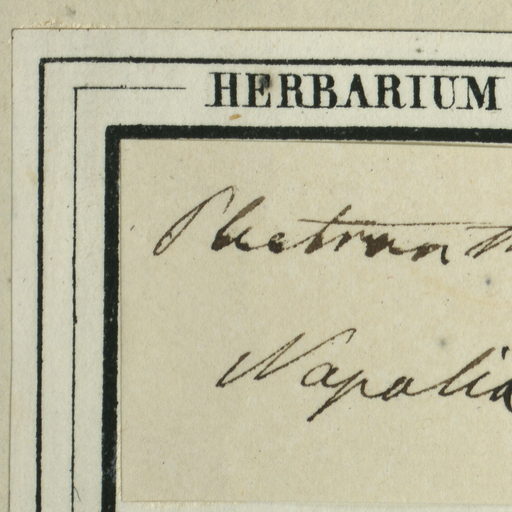 HERBARIUM
Plectranth
Napolia